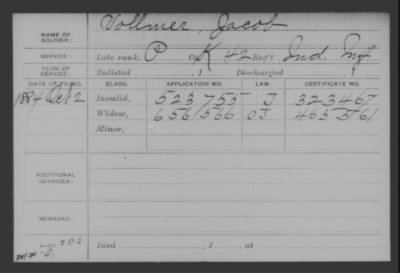 Vollmer, Jacob
NAME OF SOLDIER:
SERVICE: Late rank, P Co K 42 Reg't Ind. Inf
TERM OF SERVICE: Enlisted , 1 Discharged , 1
DATE OF FILING. CLASS. APPLICATION NO. LAW. CERTIFICATE NO.
1884 Oct 2 Invalid, 523755 J 323467
Widow, 656566 O.J 465576
Minor,
ADDITIONAL SERVICES:
REMARKS:
Died , 1 , at